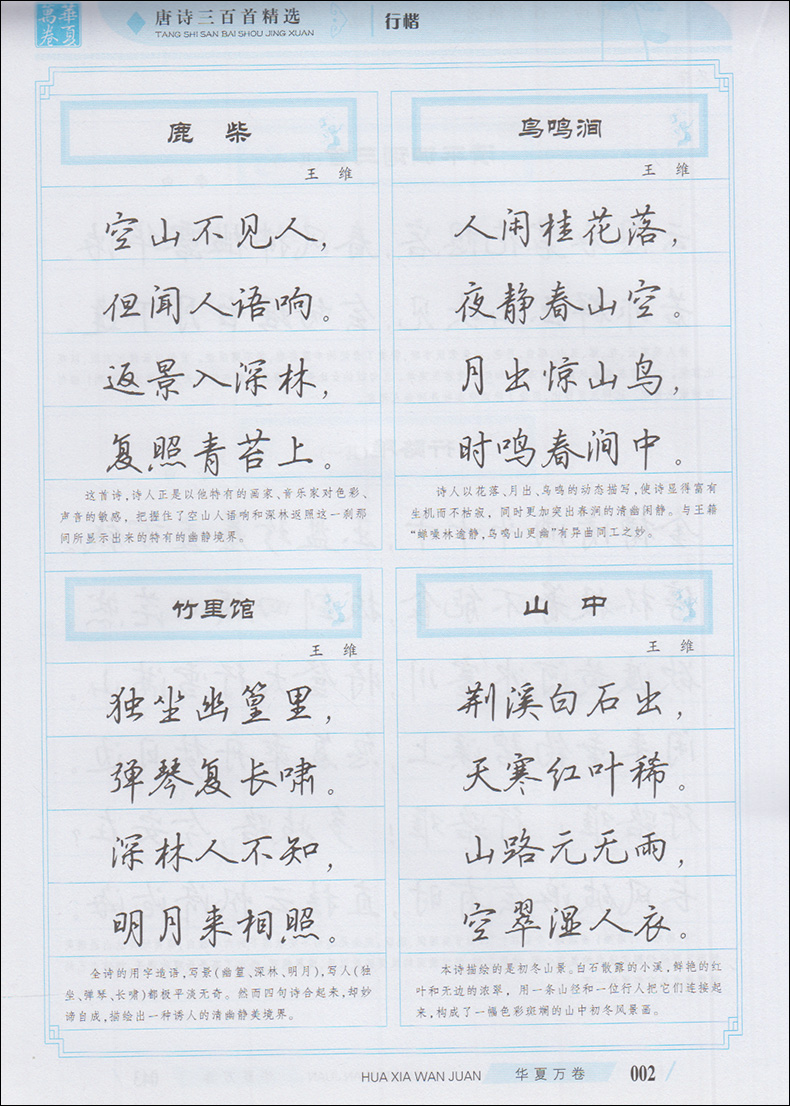 華夏萬卷
唐诗三百首精选
TANG SHI SAN BAI SHOU JING XUAN
行楷
鹿柴
王维
空山不见人，
但闻人语响。
返景入深林，
复照青苔上。
这首诗，诗人正是以他特有的画家、音乐家对色彩、
声音的敏感，把握住了空山人语响和深林返照这一刹那
间所显示出来的特有的幽静境界。
鸟鸣涧
王维
人闲桂花落，
夜静春山空。
月出惊山鸟，
时鸣春涧中。
诗人以花落、月出、鸟鸣的动态描写，使诗显得富有
生机而不枯寂，同时更加突出春涧的清幽闲静。与王籍
“蝉噪林逾静，鸟鸣山更幽”有异曲同工之妙。
竹里馆
王维
独坐幽篁里，
弹琴复长啸。
深林人不知，
明月来相照。
全诗的用字造语，写景（幽篁、深林、明月），写人（独
坐、弹琴、长啸）都极平淡无奇。然而四句诗合起来，却妙
谛自成，描绘出一种诱人的清幽静美境界。
山中
王维
荆溪白石出，
天寒红叶稀。
山路元无雨，
空翠湿人衣。
本诗描绘的是初冬山景。白石散露的小溪，鲜艳的红
叶和无边的浓翠，用一条山径和一位行人把它们连接起
来，构成了一幅色彩斑斓的山中初冬风景画。
HUA XIA WAN JUAN
华夏万卷
002